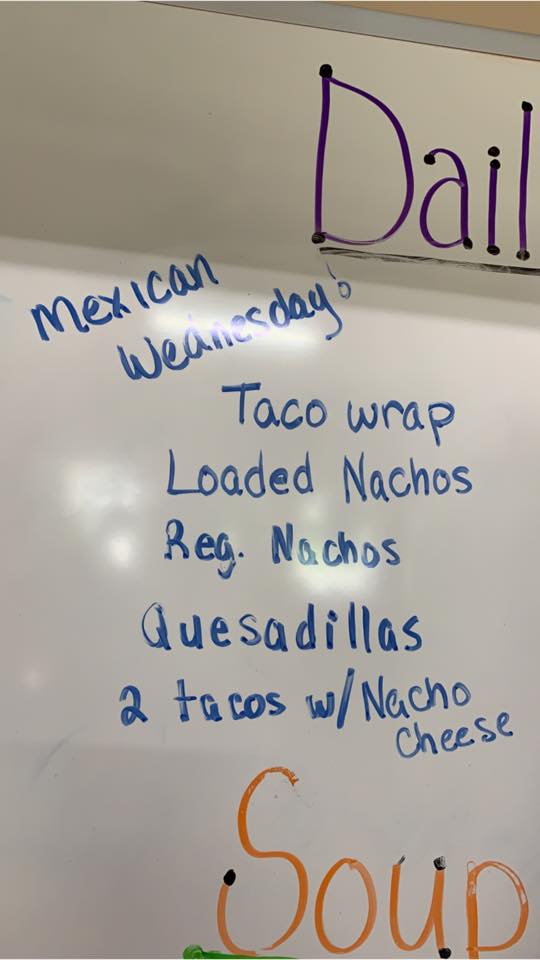 Dail
Mexican
Wednesday!
Taco wrap
Loaded Nachos
Reg. Nachos
Quesadillas
2 tacos w/Nacho
Cheese
Soup